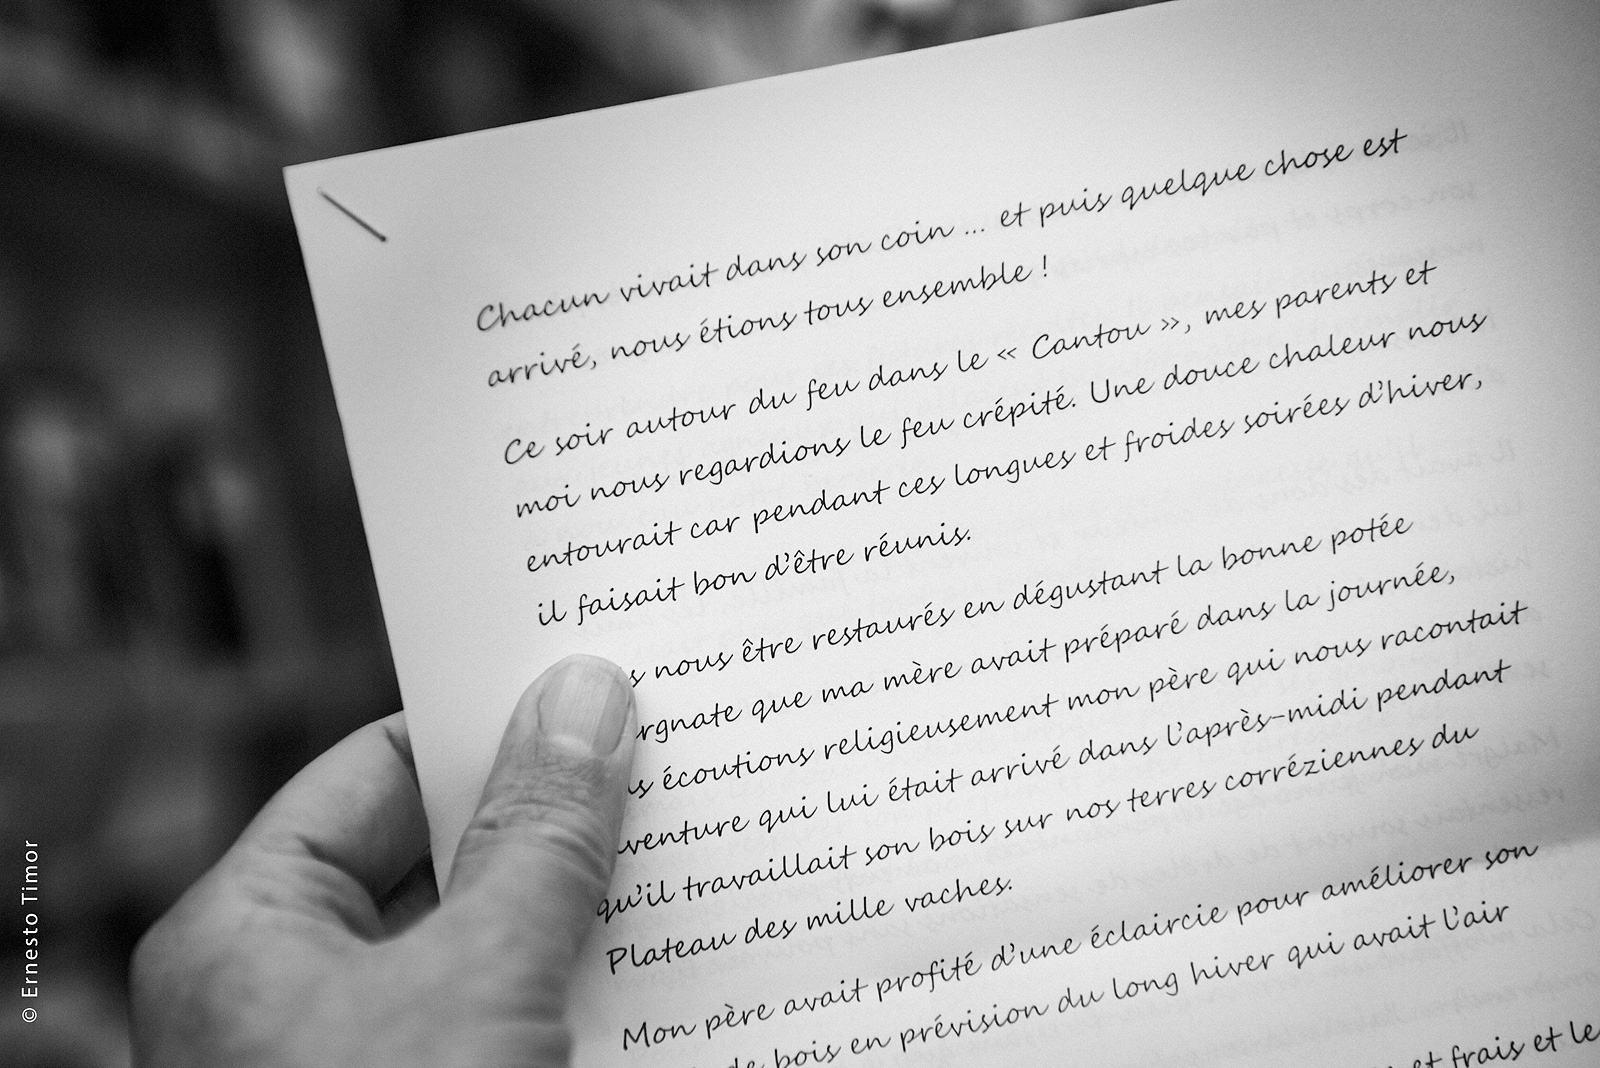 Chacun vivait dans son coin ... et puis quelque chose est
arrivé, nous étions tous ensemble !
Ce soir autour du feu dans le « Cantou », mes parents et
moi nous regardions le feu crépité. Une douce chaleur nous
entourait car pendant ces longues et froides soirées d'hiver,
il faisait bon d'être réunis.
nous être restaurés en dégustant la bonne potée
que ma mère avait préparé dans la journée,
écoutions religieusement mon père qui nous racontait
qui lui était arrivé dans l'après-midi pendant
qu'il travaillait son bois sur nos terres corréziennes du
Plateau des mille vaches.
Mon père avait profité d'une éclaircie pour améliorer son
de bois en prévision du long hiver qui avait l'air
et frais et le
© Ernesto Timor